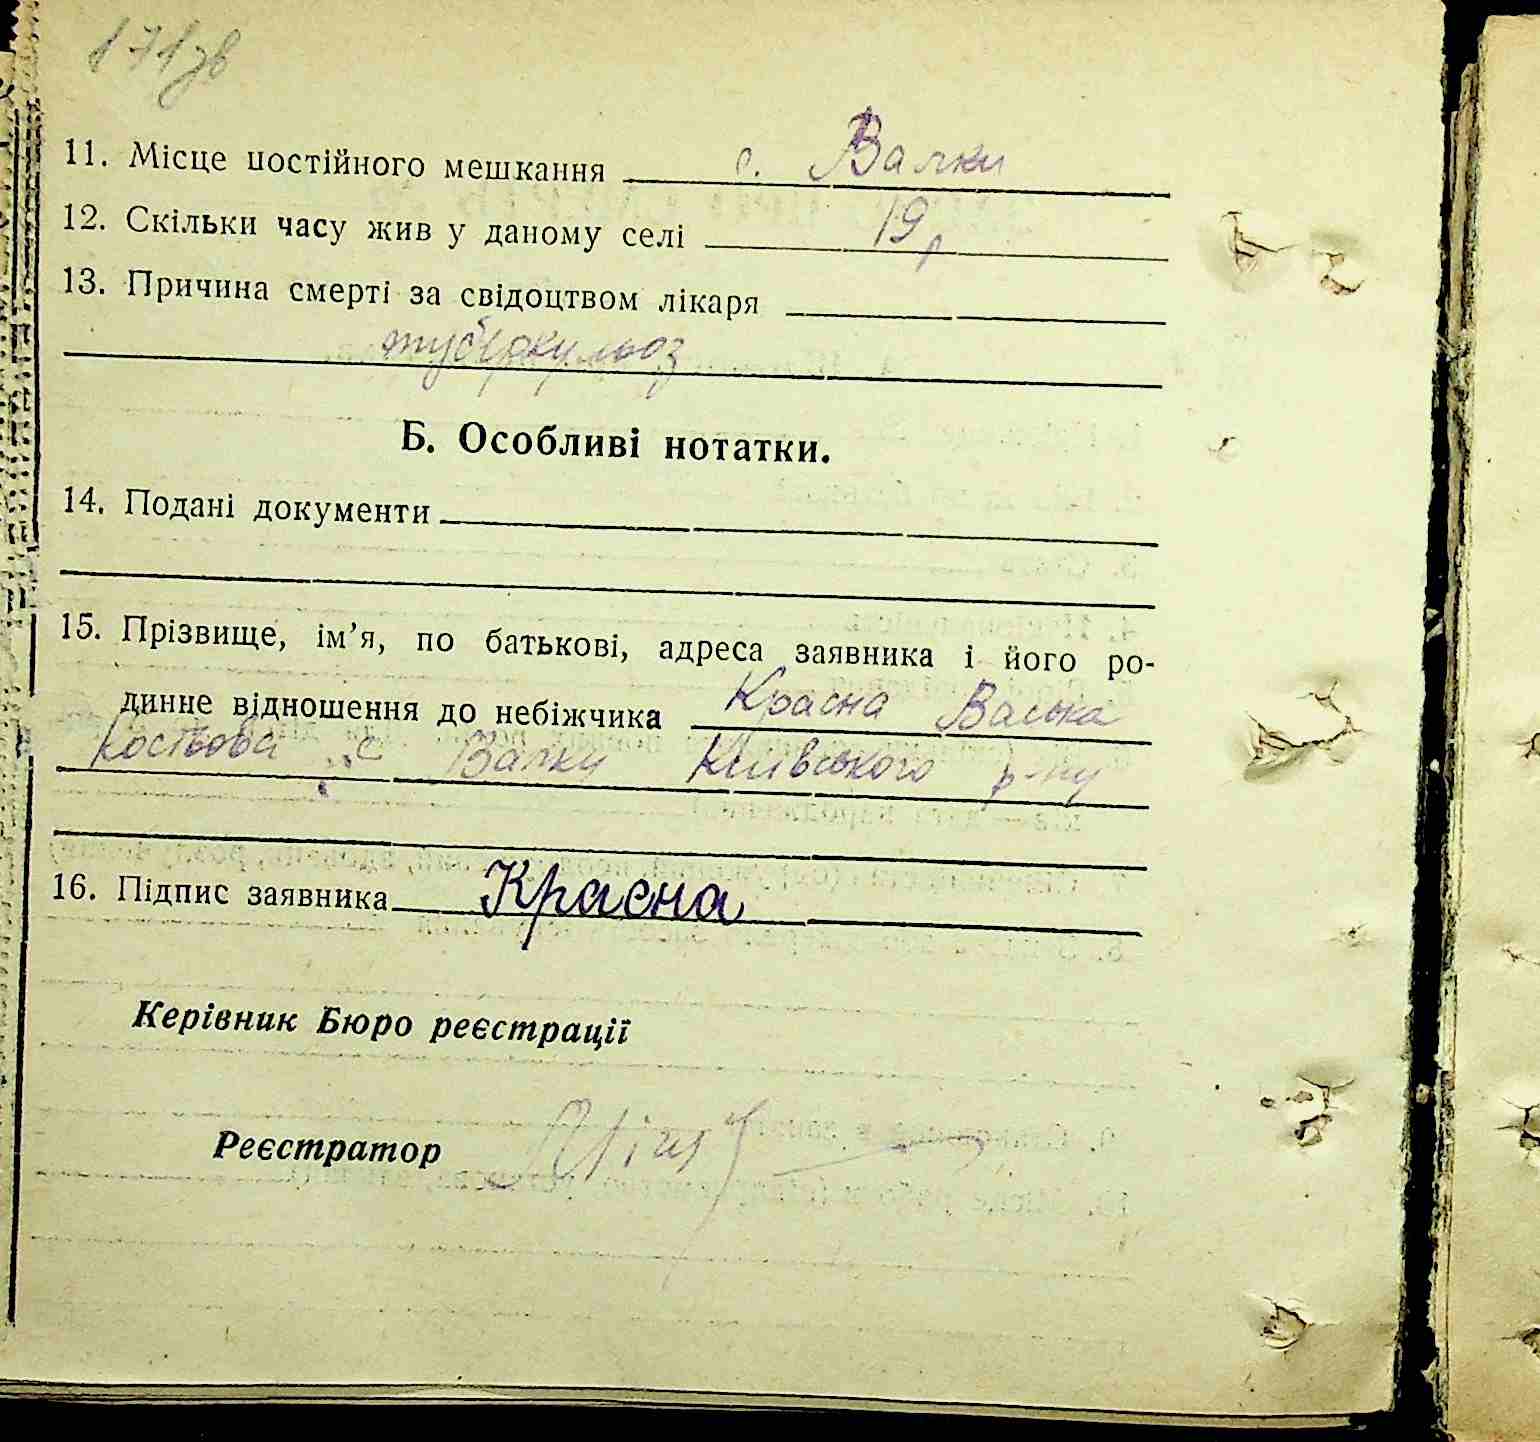 171зв
11. Місце постійного мешкання с. Валки
12. Скільки часу жив у даному селі 19 р
13. Причина смерті за свідоцтвом лікаря
туберкульоз
Б. Особливі нотатки.
14. Подані документи
15. Прізвище, ім’я, по батькові, адреса заявника і його ро-
динне відношення до небіжчика Красна Васька
Костьова с Валки Київського р-ну
16. Підпис заявника Красна
Керівник Бюро реєстрації
Реєстратор